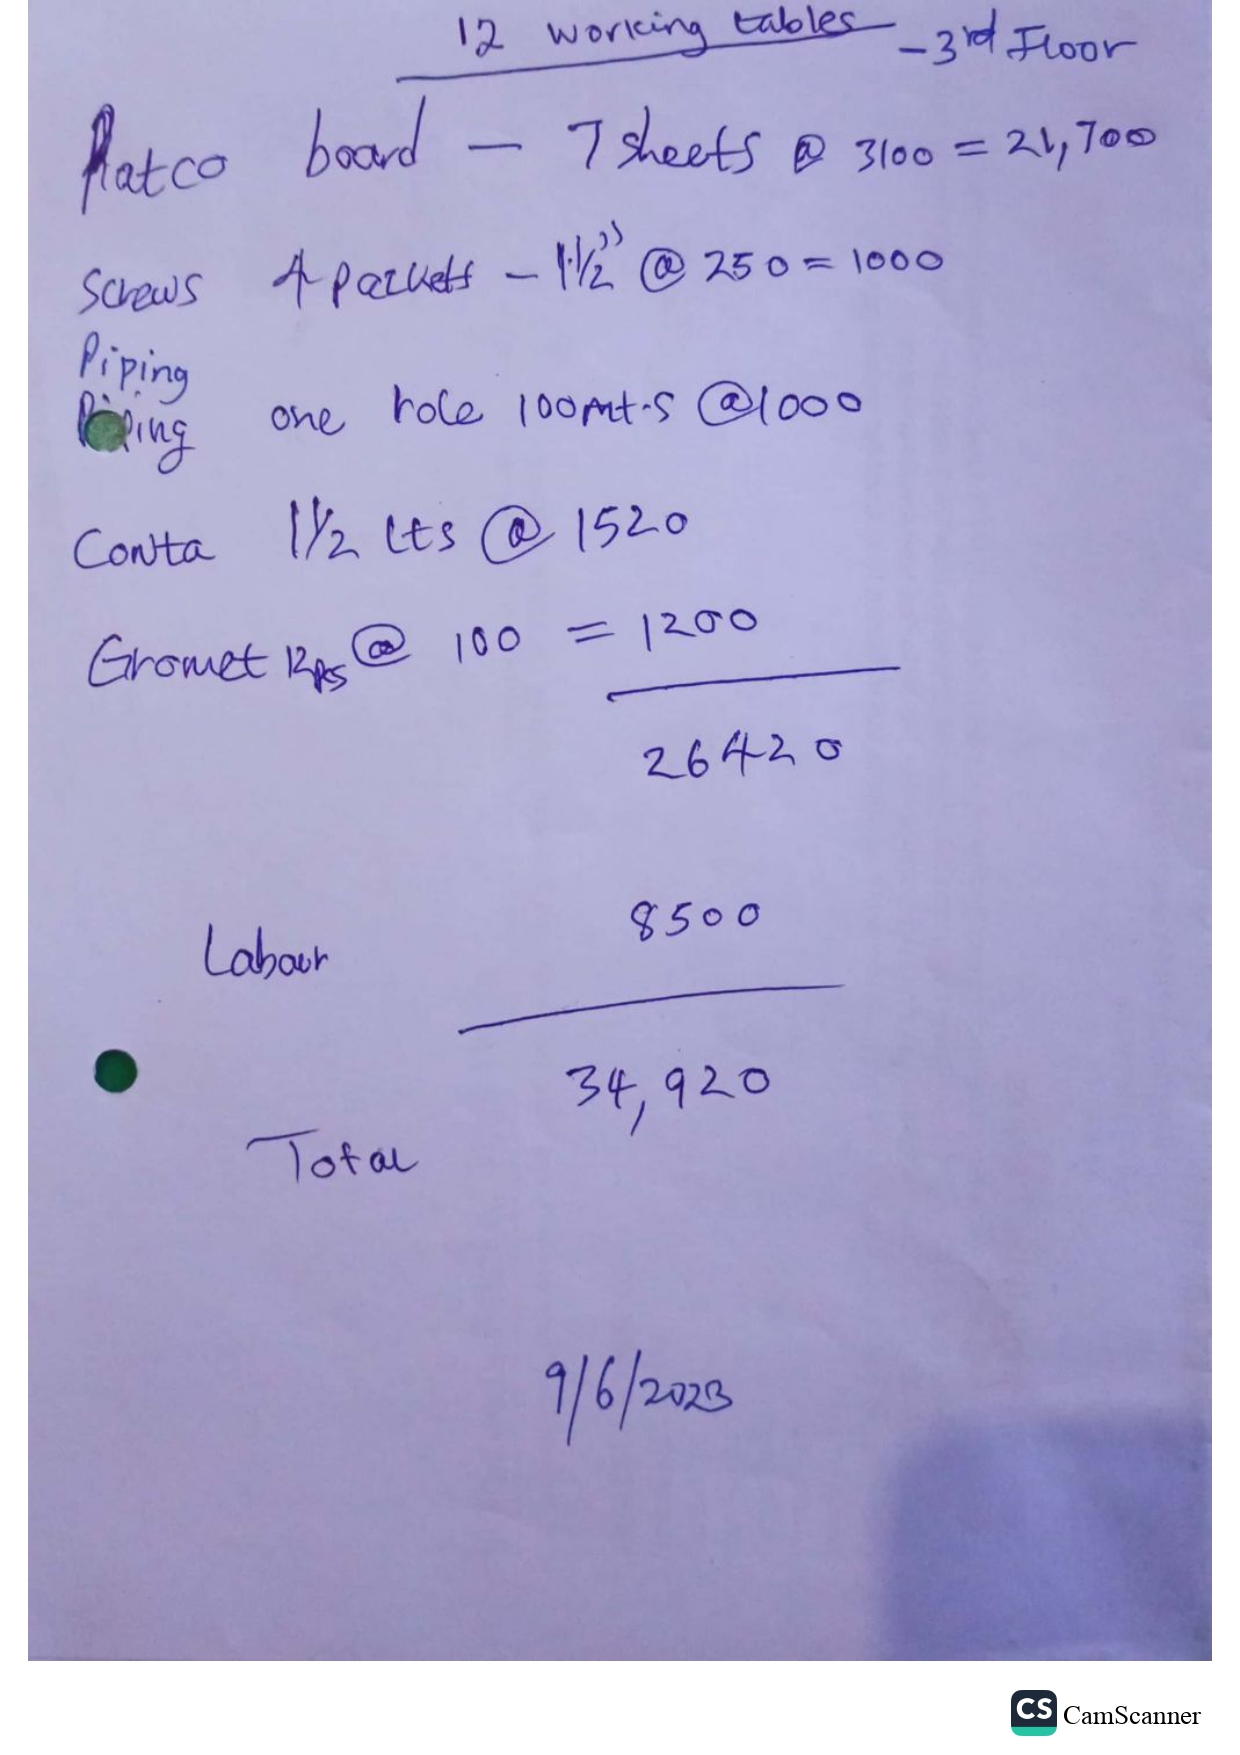 12 working tables - 3rd Floor
Platco board - 7 sheets @ 3100 = 21,700
Screws 4 packets - 1·1/2" @ 250 = 1000
Piping
Piping one role 100Mt·s @1000
Conta 1 1/2 Lts @ 1520
Gromet 12Ps @ 100 = 1200
26420
Labour 8500
34,920
Total
9/6/2023
CS CamScanner